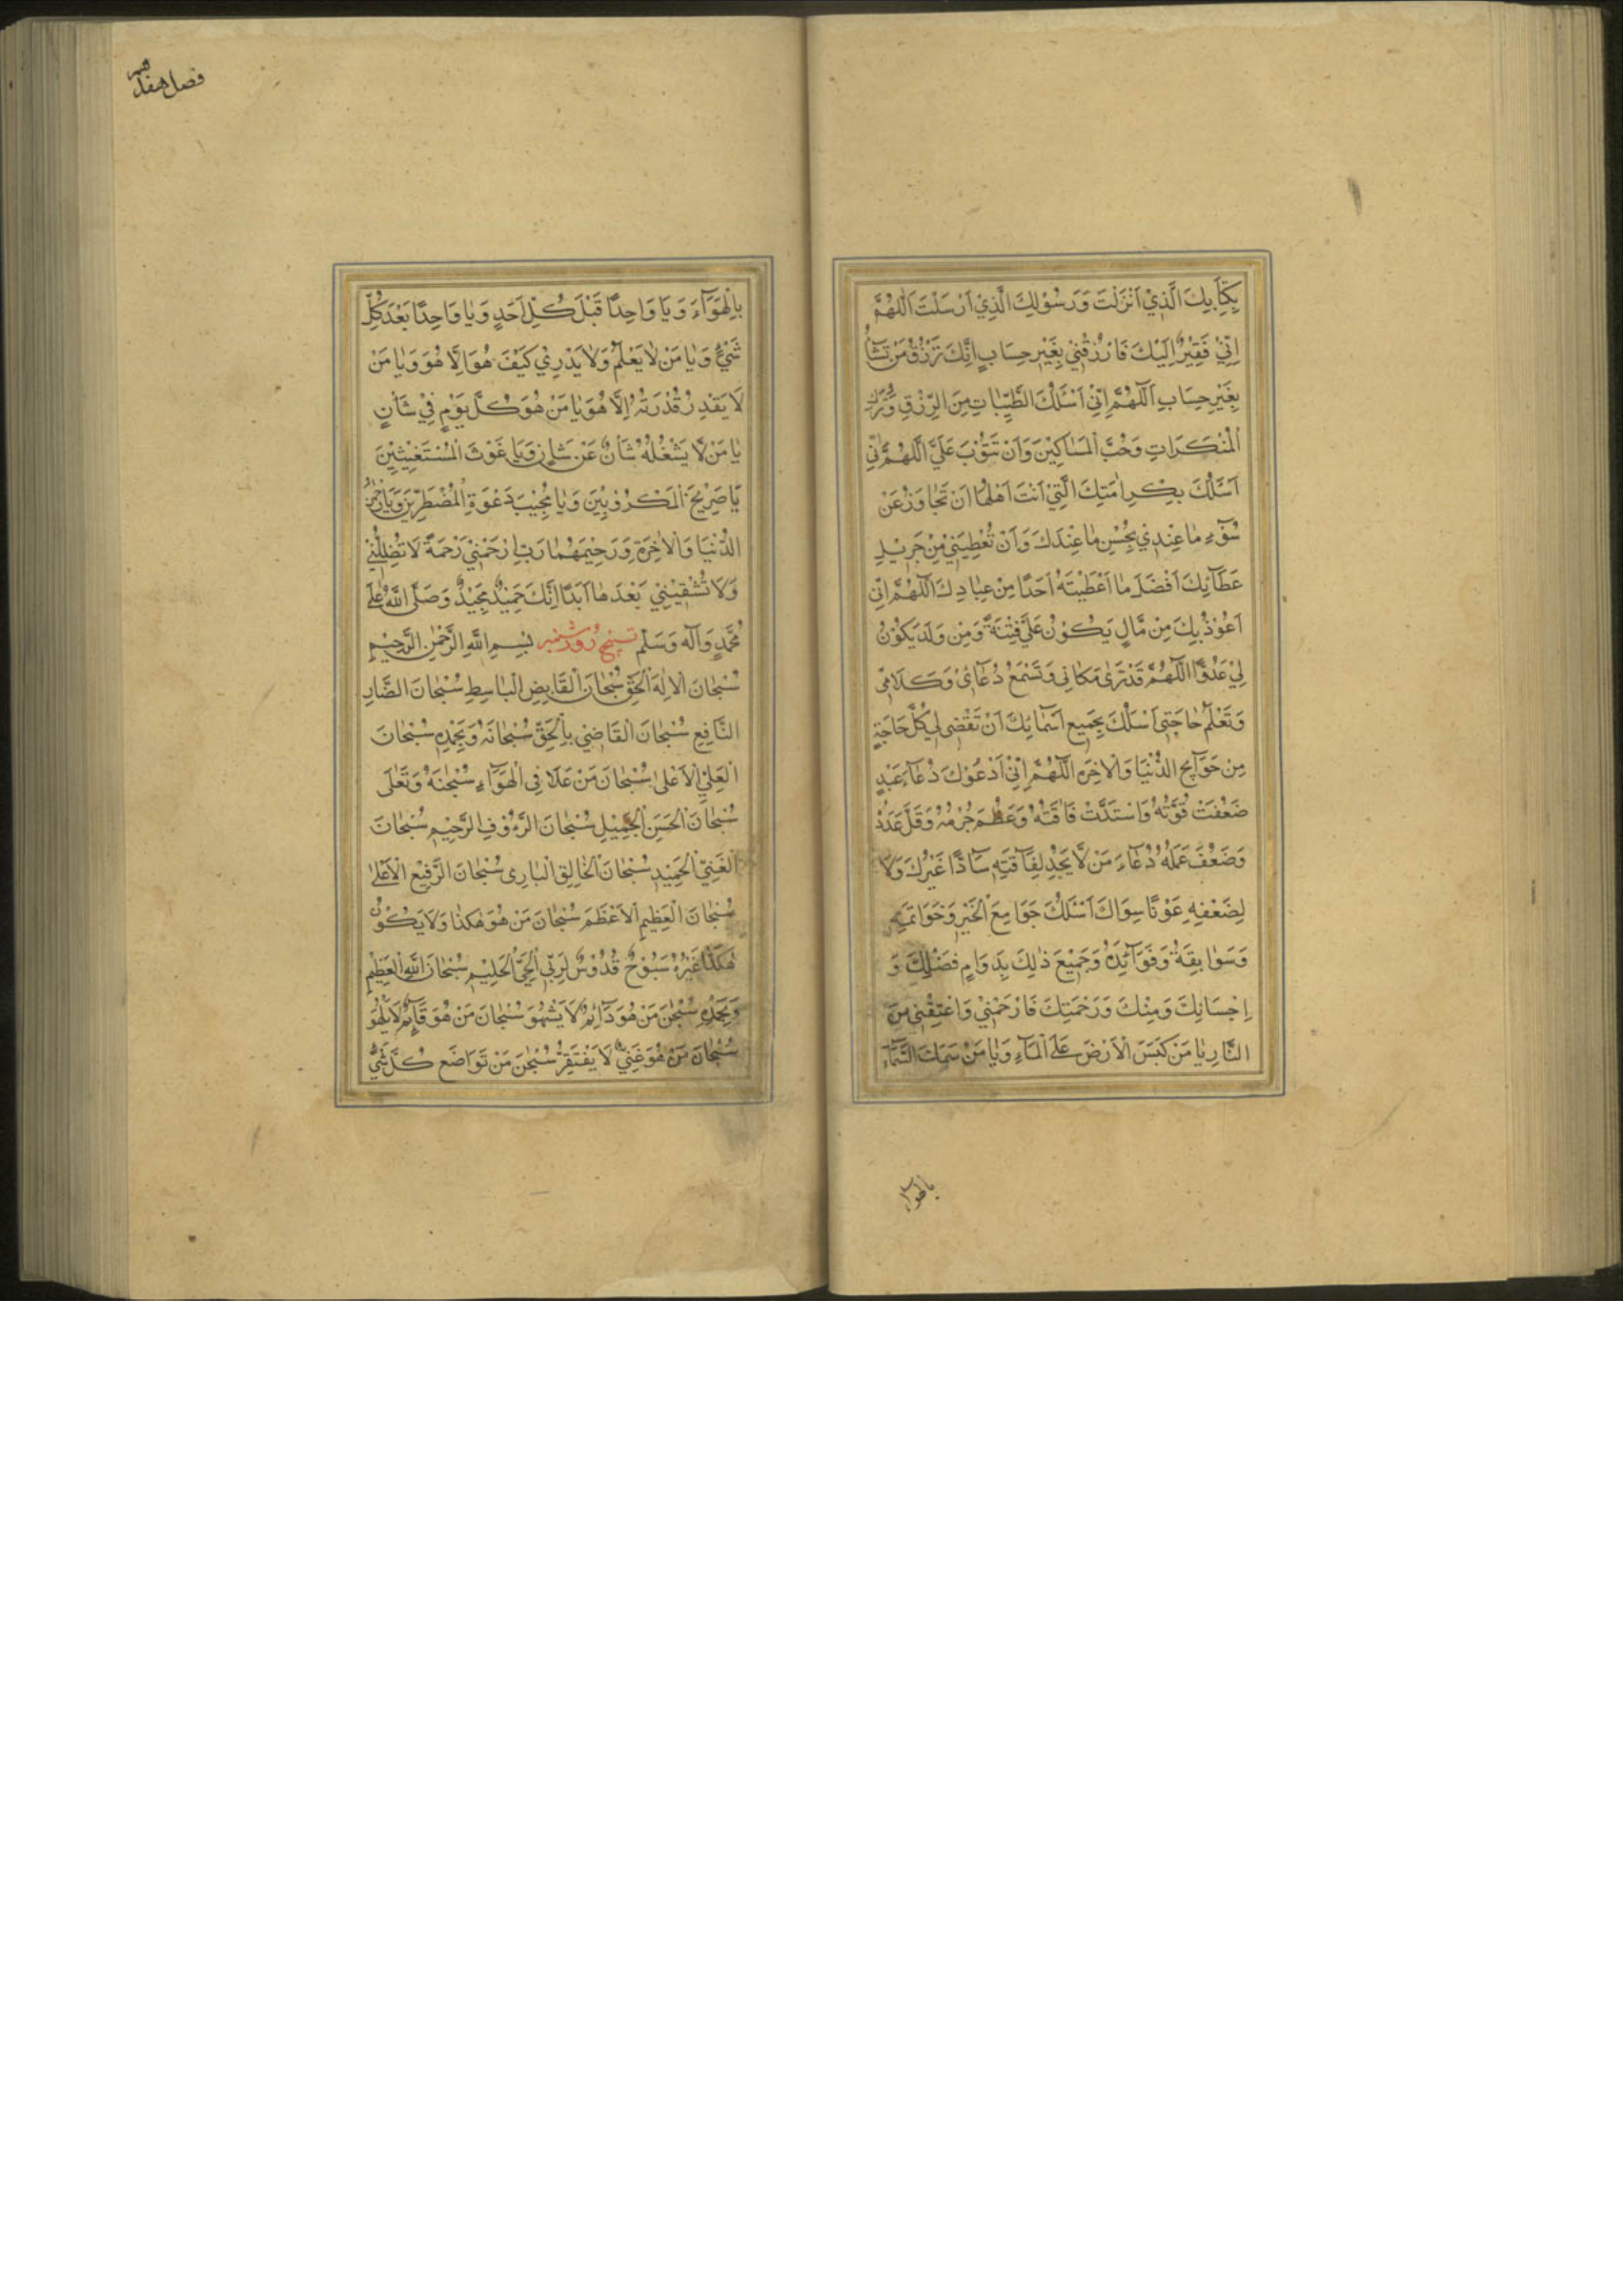 بِكِتَابِكَ الَّذِيْ اَنْزَلْتَ وَرَسُوْلِكَ الَّذِيْ اَرْسَلْتَ اَللّٰهُمَّ
اِنِّيْ فَقِيْرٌ اِلَيْكَ فَارْزُقْنِيْ بِغَيْرِ حِسَابٍ اِنَّكَ تَرْزُقُ مَنْ تَشَآءُ
بِغَيْرِ حِسَابٍ اَللّٰهُمَّ اِنِّيْ اَسْئَلُكَ الطَّيِّبَاتِ مِنَ الرِّزْقِ وَتَرْكَ
الْمُنْكَرَاتِ وَحُبَّ الْمَسَاكِيْنَ وَاَنْ تَتُوْبَ عَلَيَّ اَللّٰهُمَّ اِنِّيْ
اَسْئَلُكَ بِكَرَامَتِكَ الَّتِيْ اَنْتَ اَهْلُهَا اَنْ تَجَاوَزَ عَنْ
سُوْٓءِ مَا عِنْدِيْ بِحُسْنِ مَا عِنْدَكَ وَاَنْ تُعْطِيَنِيْ مِنْ جَزِيْلِ
عَطَآئِكَ اَفْضَلَ مَا اَعْطَيْتَهُ اَحَدًا مِنْ عِبَادِكَ اَللّٰهُمَّ اِنِّيْ
اَعُوْذُ بِكَ مِنْ مَّالٍ يَكُوْنُ عَلَيَّ فِتْنَةً وَمِنْ وَلَدٍ يَكُوْنُ
لِيْ عَدُوًّا اَللّٰهُمَّ قَدْ تَرٰى مَكَانِي وَتَسْمَعُ دُعَآئِي وَكَلَامِي
وَتَعْلَمُ حَاجَتِي اَسْئَلُكَ بِجَمِيْعِ اَسْمَائِكَ اَنْ تَقْضِيَ لِي كُلَّ حَاجَةٍ
مِنْ حَوَآئِجِ الدُّنْيَا وَالْاٰخِرَةِ اَللّٰهُمَّ اِنِّيْ اَدْعُوْكَ دُعَآءَ عَبْدٍ
ضَعُفَتْ قُوَّتُهُ وَاشْتَدَّتْ فَاقَتُهُ وَعَظُمَ جُرْمُهُ وَقَلَّ عَدَدُهُ
وَضَعُفَ عَمَلُهُ دُعَآءَ مَنْ لَّا يَجِدُ لِفَاقَتِهِ سَآدًّا غَيْرُكَ وَلَا
لِضَعْفِهِ عَوْنًا سِوَاكَ اَسْئَلُكَ جَوَامِعَ الْخَيْرِ وَخَوَاتِمَهِ
وَسَوَابِقَهُ وَفَوَآئِدَهُ وَجَمِيْعَ ذٰلِكَ بِدَوَامِ فَضْلِكَ وَ
اِحْسَانِكَ وَمِنْكَ وَرَحْمَتِكَ فَارْحَمْنِيْ وَاعْتِقْنِي مِنَ
النَّارِ يَا مَنْ كَبَسَ الْاَرْضَ عَلَى الْمَآءِ وَيَا مَنْ سَمَكَ السَّمَآءَ
بالهوآء
فصل هفدهم
بِالْهَوَآءِ وَيَا وَاحِدًا قَبْلَ كُلِّ اَحَدٍ وَيَا وَاحِدًا بَعْدَ كُلِّ
شَيْءٍ وَيَا مَنْ لَا يَعْلَمُ وَلَا يَدْرِيْ كَيْفَ هُوَ اِلَّا هُوَ وَيَا مَنْ
لَا يَقْدِرُ قُدْرَتَهُ اِلَّا هُوَ يَا مَنْ هُوَ كُلَّ يَوْمٍ فِيْ شَاْنٍ
يَا مَنْ لَّا يَشْغُلُهُ شَاْنٌ عَنْ شَاْنٍ وَيَا غَوْثَ الْمُسْتَغِيْثِيْنَ
يَا صَرِيْخَ الْمَكْرُوْبِيْنَ وَيَا مُجِيْبَ دَعْوَةِ الْمُضْطَرِّيْنَ وَيَا رَحْمٰنَ
الدُّنْيَا وَالْاٰخِرَةِ وَرَحِيْمَهُمَا رَبِّ ارْحَمْنِيْ رَحْمَةً لَا تُضِلُّنِيْ
وَلَا تُشْقِيْنِيْ بَعْدَهَا اَبَدًا اِنَّكَ حَمِيْدٌ مَجِيْدٌ وَصَلَّى اللّٰهُ عَلٰى
مُحَمَّدٍ وَآلِهِ وَسَلَّمَ تسبيح روز شنبه بِسْمِ اللّٰهِ الرَّحْمٰنِ الرَّحِيْمِ
سُبْحَانَ الْاِلٰهِ الْحَقِّ سُبْحَانَ الْقَابِضِ الْبَاسِطِ سُبْحَانَ الضَّارِّ
النَّافِعِ سُبْحَانَ الْقَاضِي بِالْحَقِّ سُبْحَانَهُ وَبِحَمْدِهِ سُبْحَانَ
الْعَلِيِّ الْاَعْلٰى سُبْحَانَ مَنْ عَلَا فِي الْهَوَآءِ سُبْحٰنَهُ وَتَعٰلٰى
سُبْحَانَ الْحَسَنِ الْجَمِيْلِ سُبْحَانَ الرَّءُوْفِ الرَّحِيْمِ سُبْحَانَ
الْغَنِيِّ الْحَمِيْدِ سُبْحَانَ الْخَالِقِ الْبَارِئِ سُبْحَانَ الرَّفِيْعِ الْاَعْلٰى
سُبْحَانَ الْعَظِيْمِ الْاَعْظَمِ سُبْحَانَ مَنْ هُوَ هٰكَذَا وَلَا يَكُوْنُ
هٰكَذَا غَيْرُهُ سَبُّوْحٌ قُدُّوْسٌ لِرَبِّي الْحَيِّ الْحَلِيْمِ سُبْحَانَ اللّٰهِ الْعَظِيْمِ
وَبِحَمْدِهِ سُبْحٰنَ مَنْ هُوَ دَآئِمٌ لَا يَسْهُوَ سُبْحَانَ مَنْ هُوَ قَآئِمٌ لَا يَلْهُوَ
سُبْحَانَ مَنْ هُوَ غَنِيٌّ لَا يَفْتَقِرُ سُبْحٰنَ مَنْ تَوَاضَعَ كُلُّ شَيْءٍ